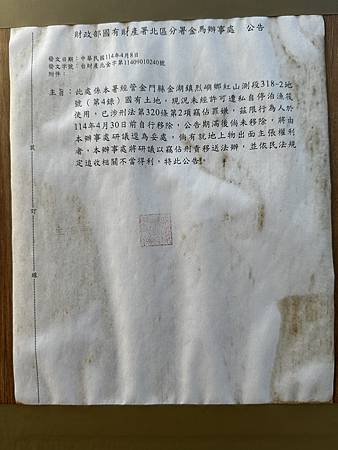 財政部國有財產署北區分署金馬辦事處　公告
發文日期：中華民國114年4月8日
發文字號：台財產北金字第11409010240號
附件：
主旨：此處係本署經管金門縣金湖鎮烈嶼鄉紅山測段318-2地
號（第4錄）國有土地，現況未經許可遭私自停泊漁筏
使用，已涉刑法第320條第2項竊佔罪嫌，茲限行為人於
114年4月30前自行移除，公告期滿後倘未移除，將由
本辦事處研議逕為妥處，倘有就地上物出面主張權利
者，本辦事處將研議以竊佔刑責移送法辦，並依民法規
定追收相關不當得利，特此公告！
裝
訂
線